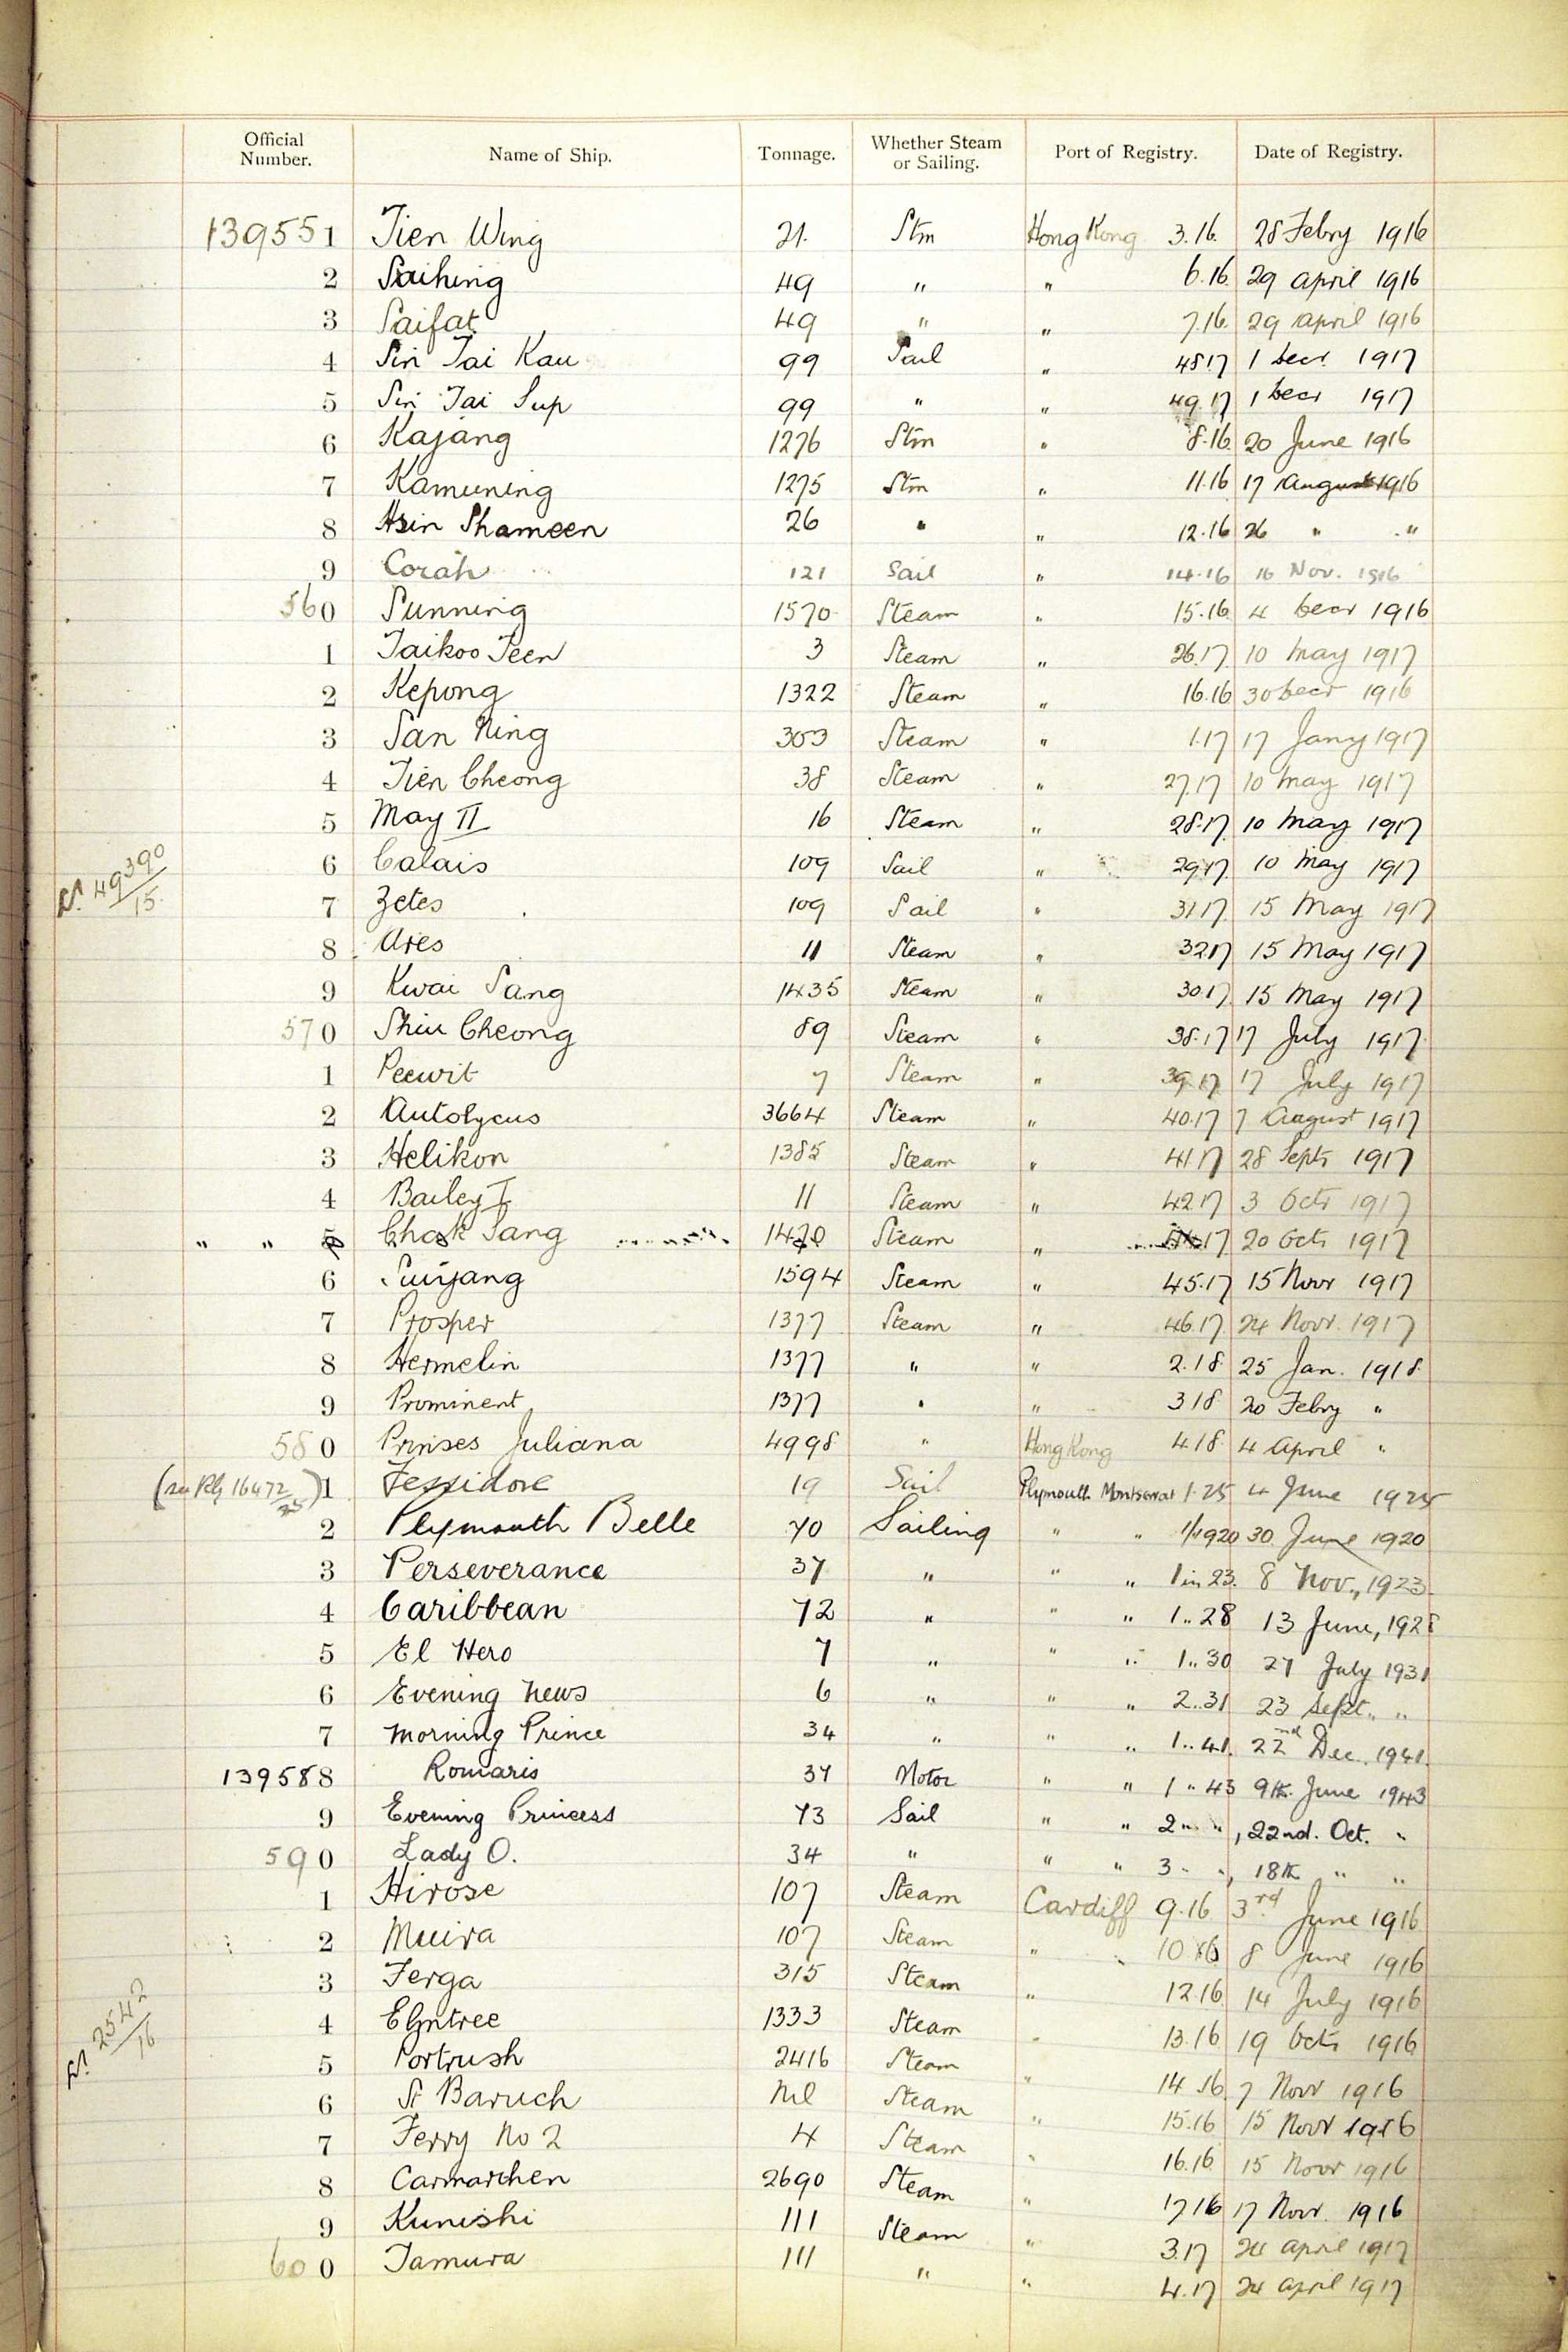 Official Number. Name of Ship. Tonnage. Whether Steam or Sailing. Port of Registry. Date of Registry.
139551 Tien Wing 21. Stm Hong Kong 3.16. 28 Febry 1916
2 Saihing 49 " " 6.16. 29 April 1916
3 Saifat 49 " " 7.16. 29 April 1916
4 Sin Tai Kau 99 Sail " 48.17 1 Decr. 1917
5 Sin Tai Sup 99 " " 49.17 1 Decr 1917
6 Kajang 1276 Stm " 8.16. 20 June 1916
7 Kamuning 1275 Stm " 11.16 17 August 1916
8 Hsin Shameen 26 " " 12.16 26 " "
9 Corah 121 Sail " 14.16 16 Nov. 1916
560 Sunning 1570 Steam " 15.16 4 Decr 1916
1 Taikoo Teen 3 Steam " 26.17 10 May 1917
2 Kepong 1322 Steam " 16.16 30 Decr 1916
3 San Ning 303 Steam " 1.17 17 Jany 1917
4 Tien Cheong 38 Steam " 27.17 10 May 1917
5 May II 16 Steam " 28.17 10 May 1917
6 Calais 109 Sail " 29.17. 10 May 1917
49390/15.
7 Zetes 109 Sail " 31.17. 15 May 1917
8 Ares 11 Steam " 32.17 15 May 1917
9 Kwai Sang 1435 Steam " 30.17 15 May 1917
570 Shiu Cheong 89 Steam " 38.17 17 July 1917
1 Peewit 7 Steam " 39.17 17 July 1917
2 Autolycus 3664 Steam " 40.17 7 August 1917
3 Helikon 1385 Steam " 41.17 28 Septr 1917
4 Bailey I 11 Steam " 42.17 3 Octr 1917
" " 5 Chak Sang 1470 Steam " 17 20 Octr 1917
6 Suiyang 1594 Steam " 45.17 15 Novr 1917
7 Prosper 1377 Steam " 46.17 24 Novr. 1917
8 Hermelin 1377 " " 2.18. 25 Jan. 1918.
9 Prominent 1377 " " 3.18 20 Febry "
580 Prinses Juliana 4998 " Hong Kong 4.18. 4 April "
(see Rlg 16472/25) 1 Fessidore 19 Sail Plymouth Montserrat 1.25 4 June 1925
2 Plymouth Belle 70 Sailing " " 1/1920 30. June 1920
3 Perseverance 37 " " " 1 in 23. 8 Nov., 1923.
4 Caribbean 72 " " " 1 " 28 13 June, 1928
5 El Hero 7 " " " 1 " 30 27 July 1931
6 Evening News 6 " " " 2 " 31 23 Sept. " "
7 Morning Prince 34 " " " 1 " 41. 22nd Dec. 1941.
139588 Romaris 37 Motor " " 1 " 43 9th. June 1943
9 Evening Princess 73 Sail " " 2 " ", 22nd. Oct. "
590 Lady O. 34 " " " 3 " ", 18th " "
1 Hirose 107 Steam Cardiff 9.16 3rd June 1916
2 Muira 107 Steam " " 10.16 8 June 1916
3 Ferga 315 Steam " 12.16. 14 July 1916
4 Elmtree 1333 Steam " 13.16 19 Octr 1916
2542/16
5 Portrush 2416 Steam " 14.16. 7 Novr 1916
6 St Baruch Nil Steam " 15.16 15 Novr 1916
7 Ferry No 2 4 Steam " 16.16. 15 Novr 1916
8 Carmarthen 2690 Steam " 17.16 17 Novr. 1916
9 Kunishi 111 Steam " 3.17 24 April 1917
600 Tamura 111 " " 4.17 24 April 1917